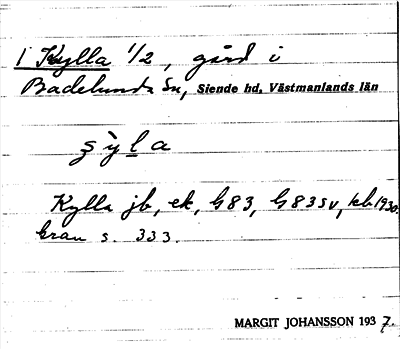 1 Kylla 1/2, gård i
Badelunda sn, Siende hd, Västmanlands län
şỳla
Kylla jb, ek, G 83, G 83 sv, kb 1930.
Grau s. 333.
MARGIT JOHANSSON 1937.